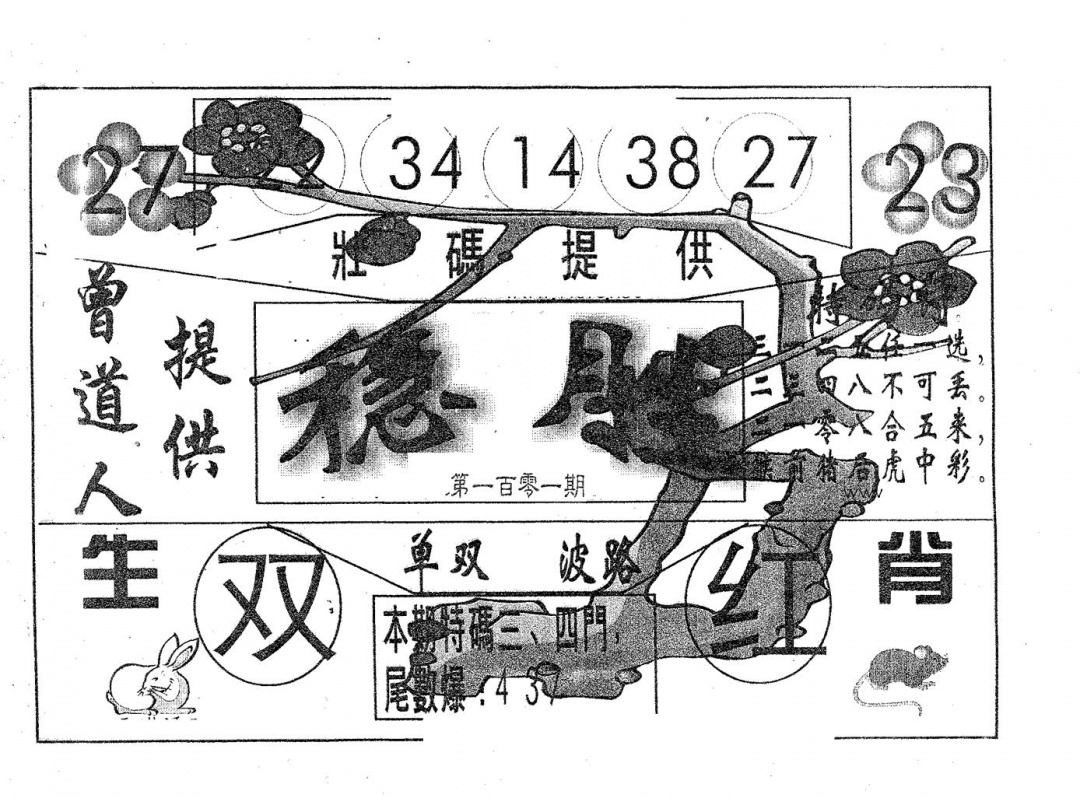 27 34 14 38 27 23
壯碼提供
曾道人
提供
稳胜
第一百零一期
特
选，
二三四八不可丢。
零八合五来，
猪后虎中彩。
www
生 双 单双 波路 红 肖
本期特碼三、四門，
尾數爆：4 3